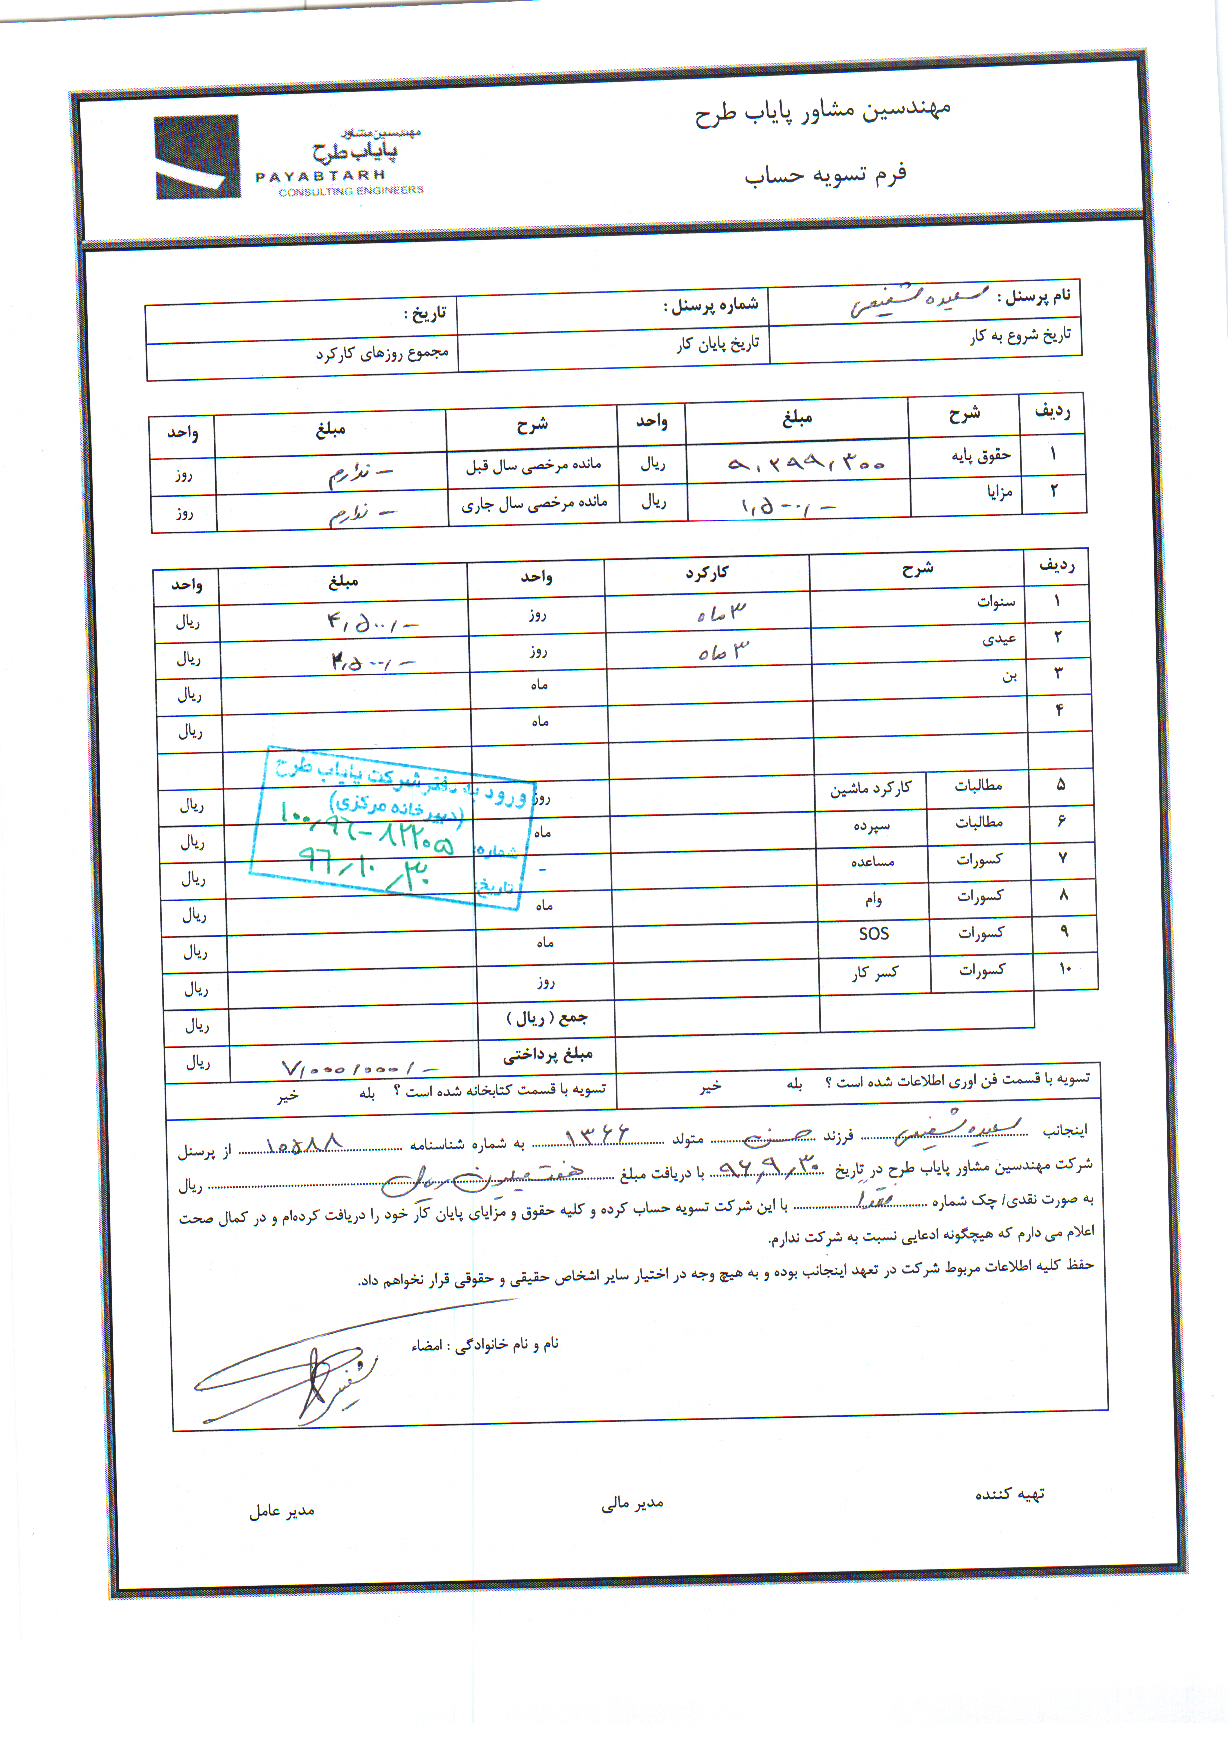 مهندسین مشاور پایاب طرح
فرم تسویه حساب
مهندسین مشاور
پایاب طرح
PAYABTARH
CONSULTING ENGINEERS
نام پرسنل : سعیده شفیعی شماره پرسنل : تاریخ :
تاریخ شروع به کار تاریخ پایان کار مجموع روزهای کارکرد
ردیف شرح مبلغ واحد شرح مبلغ واحد
۱ حقوق پایه ۹,۲۹۹,۳۰۰ ریال مانده مرخصی سال قبل - ندارم روز
۲ مزایا ۱,۵۰۰,- ریال مانده مرخصی سال جاری - ندارم روز
ردیف شرح کارکرد واحد مبلغ واحد
۱ سنوات ۳ ماه روز ۴,۵۰۰,- ریال
۲ عیدی ۳ ماه روز ۲,۵۰۰,- ریال
۳ بن ماه ریال
۴ ماه ریال
۵ مطالبات کارکرد ماشین روز ریال
۶ مطالبات سپرده ماه ریال
۷ کسورات مساعده - ریال
۸ کسورات وام ماه ریال
۹ کسورات SOS ماه ریال
۱۰ کسورات کسر کار روز ریال
جمع ( ریال ) ریال
مبلغ پرداختی ۷,۰۰۰,۰۰۰,- ریال
ورود به دفتر شرکت پایاب طرح
(دبیرخانه مرکزی)
شماره: ۱۰۰,۹۶-۸۲۲۰۵
تاریخ: ۹۶,۱۰,۳۰
تسویه با قسمت فن اوری اطلاعات شده است ؟ بله خیر تسویه با قسمت کتابخانه شده است ؟ بله خیر
اینجانب سعیده شفیعی فرزند حسن متولد ۱۳۶۶ به شماره شناسنامه ۱۰۵۸۸ از پرسنل
شرکت مهندسین مشاور پایاب طرح در تاریخ ۹۶,۹,۳۰ با دریافت مبلغ هفت میلیون ریال ریال
به صورت نقدی/ چک شماره نقدا با این شرکت تسویه حساب کرده و کلیه حقوق و مزایای پایان کار خود را دریافت کرده‌ام و در کمال صحت
اعلام می دارم که هیچگونه ادعایی نسبت به شرکت ندارم.
حفظ کلیه اطلاعات مربوط شرکت در تعهد اینجانب بوده و به هیچ وجه در اختیار سایر اشخاص حقیقی و حقوقی قرار نخواهم داد.
نام و نام خانوادگی : امضاء
تهیه کننده مدیر مالی مدیر عامل